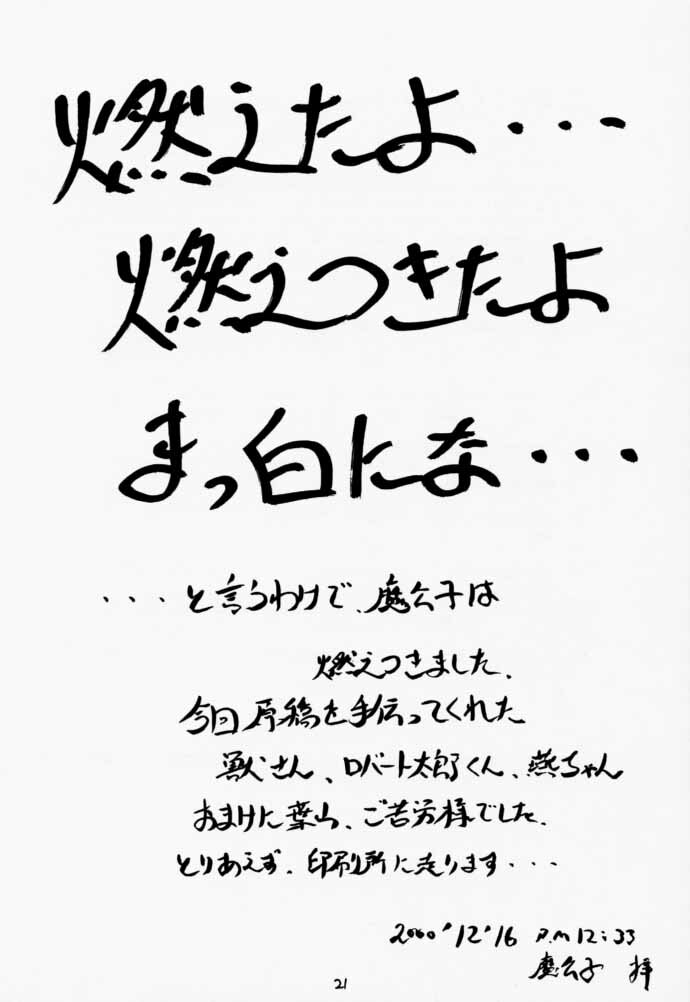 燃えたよ・・・
燃えつきたよ
まっ白にな・・・
・・・と言うわけで、魔公子は
燃えつきました、
今回原稿を手伝ってくれた
獣さん、ロバート太郎くん、燕ちゃん
おまけに葉山、ご苦労様でした、
とりあえず、印刷所に走ります・・・
2000'12'16 P.M 12:33
魔公子 拝
21